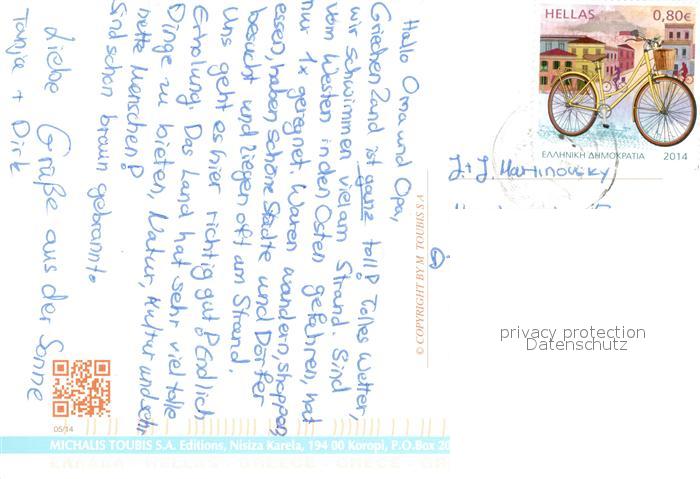 Hallo Oma und Opa,
Griechenland ist ganz toll! Tolles Wetter,
wir schwimmen viel am Strand. Sind
vom Westen in den Osten gefahren, hat
nur 1x geregnet. Waren wandern, shoppen,
essen, haben schöne Städte und Dörfer
besucht und liegen oft am Strand.
Uns geht es hier richtig gut! Endlich
Erholung. Das Land hat sehr viel tolle
Dinge zu bieten, Natur, Kultur und sehr
nette Menschen!
Sind schon braun gebrannt.
Liebe Grüße aus der Sonne
Tanja + Dirk
HELLAS 0,80€
ΕΛΛΗΝΙΚΗ ΔΗΜΟΚΡΑΤΙΑ 2014
J.+J. Martinovsky
© COPYRIGHT BY M. TOUBIS S.A.
privacy protection
Datenschutz
05/14
MICHALIS TOUBIS S.A. Editions, Nisiza Karela, 194 00 Koropi, P.O.Box 20